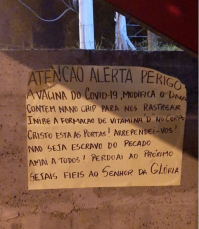 ATENÇÃO ALERTA PERIGO
A VACINA DO COVID-19, MODIFICA O DNA
CONTEM NANO CHIP PARA NOS RASTREAR
INIBE A FORMAÇÃO DE VITAMINA D NO CORPO
CRISTO ESTA AS PORTAS! ARREPENDEI-VOS!
NÃO SEJA ESCRAVO DO PECADO
AMAI A TODOS! PERDOAI AO PRÓXIMO
SEJAIS FIEIS AO SENHOR DA GLÓRIA